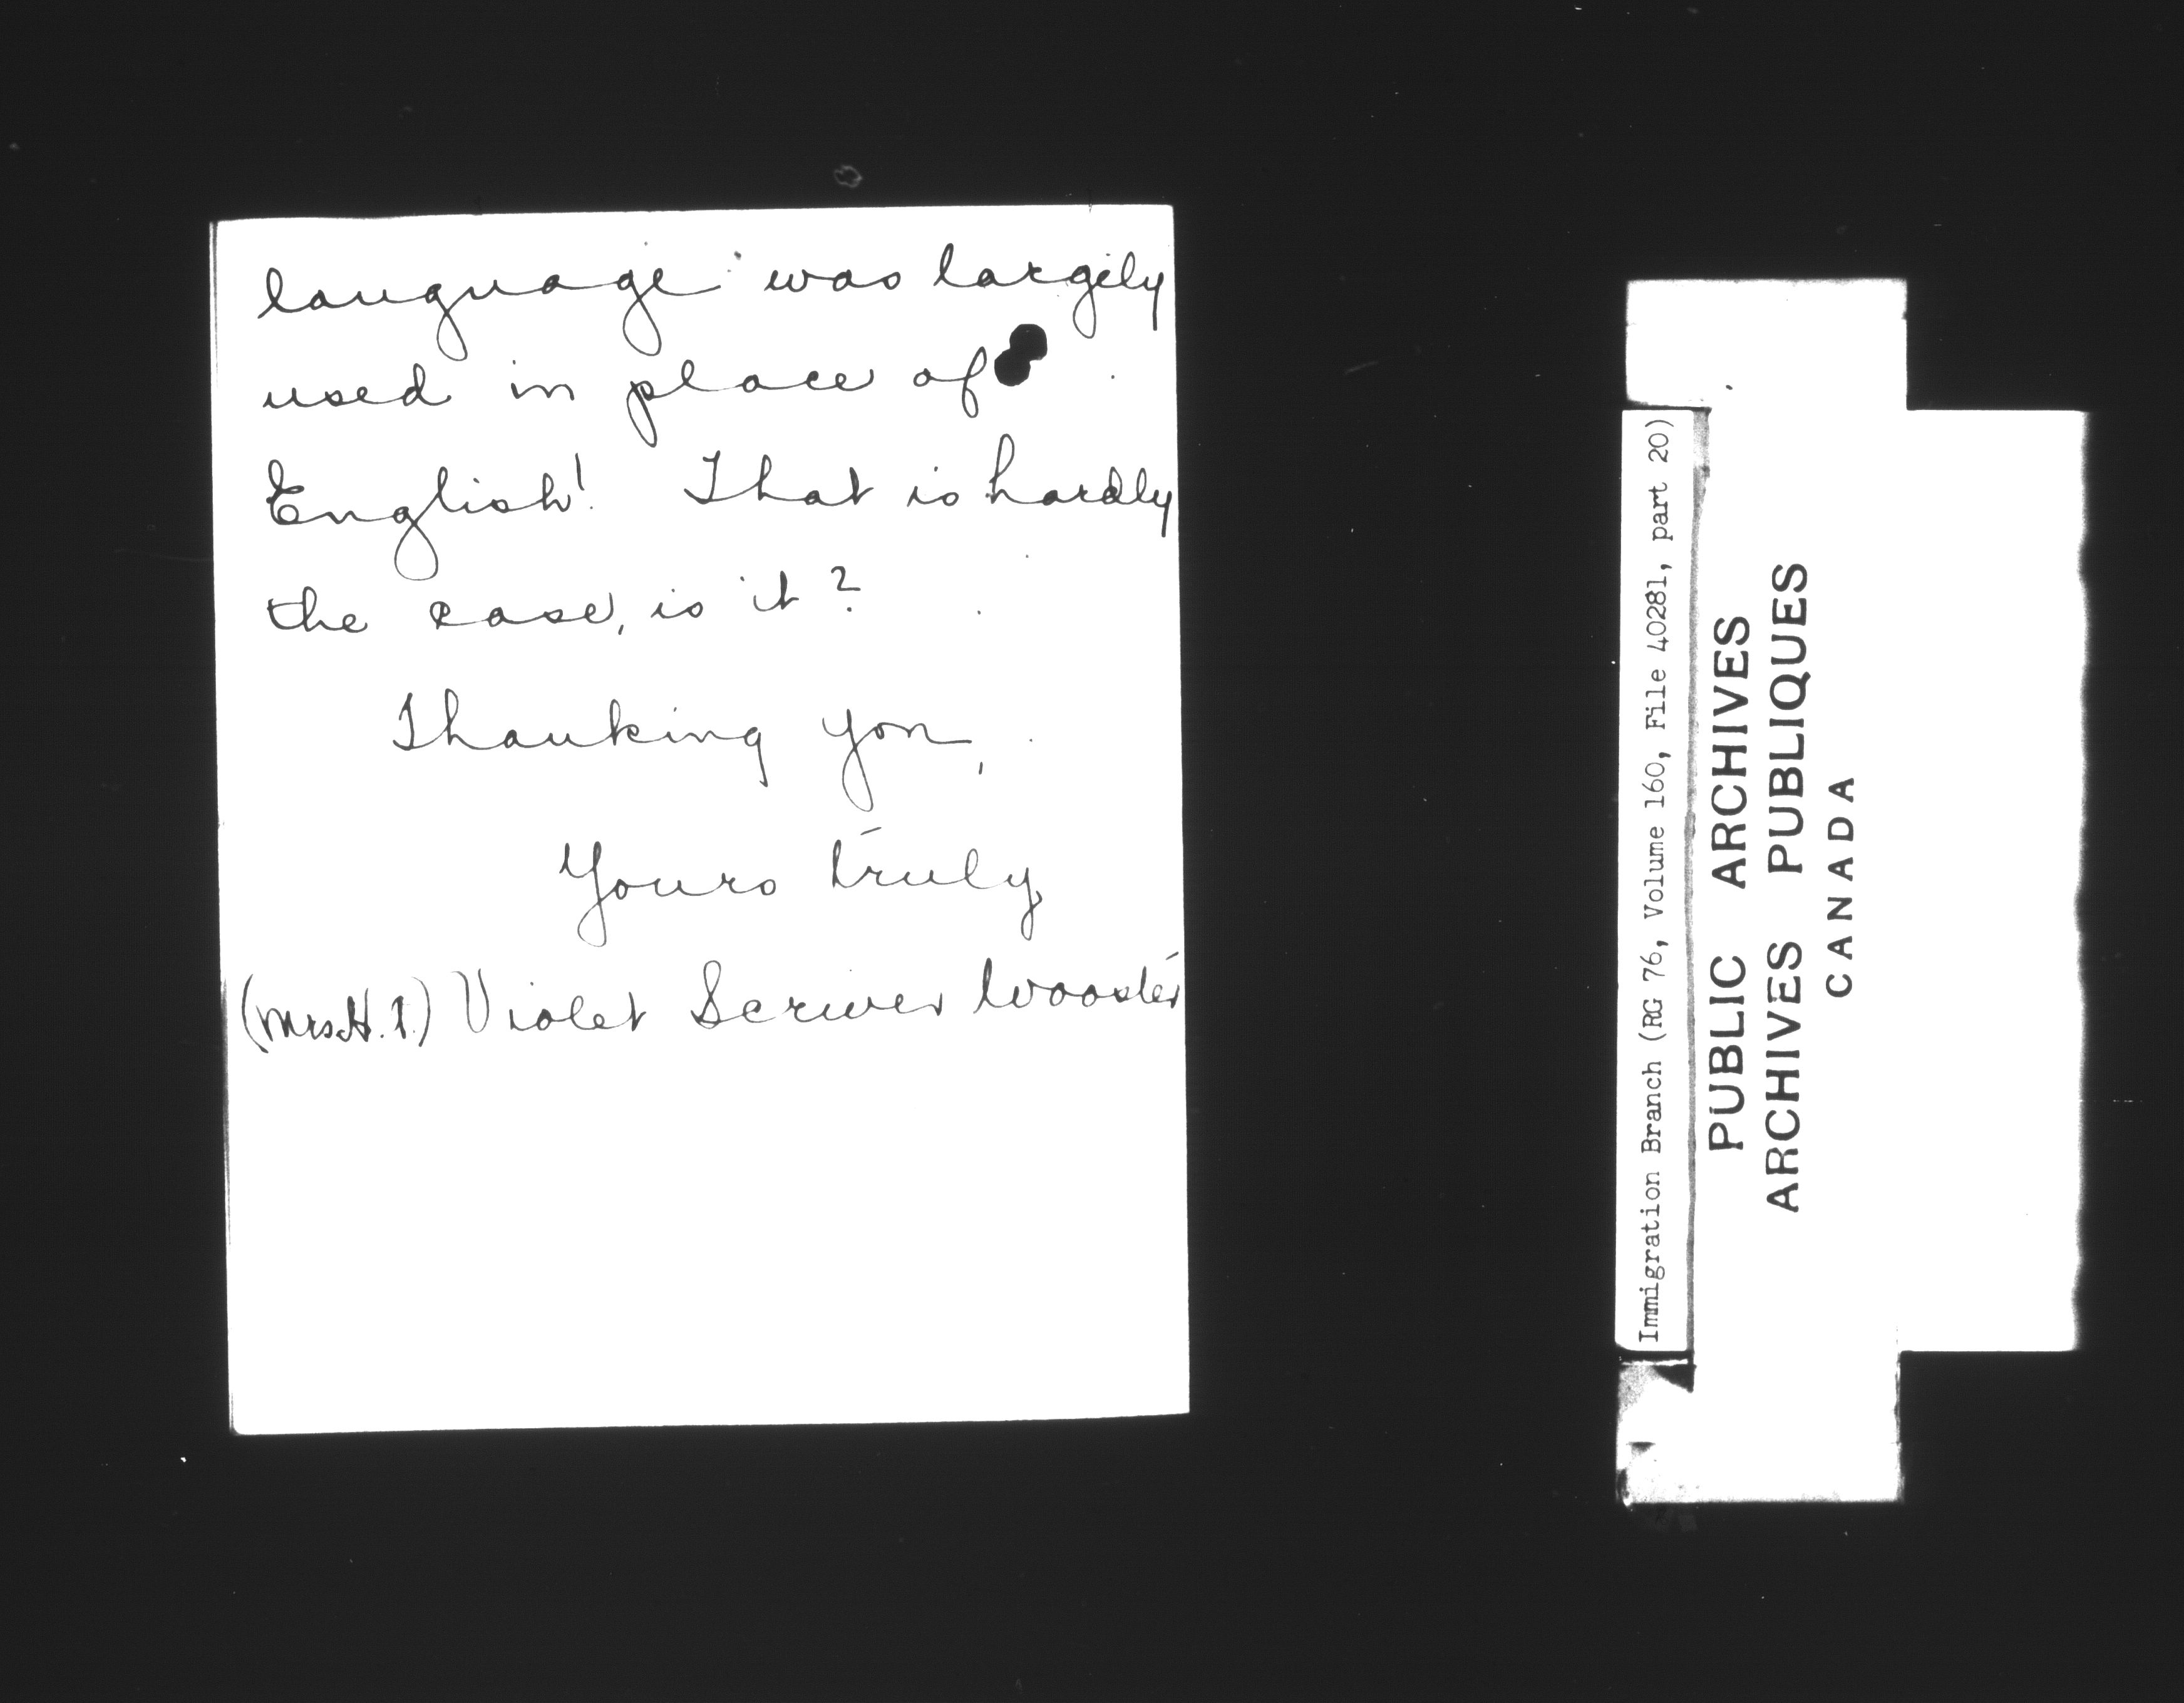 language was largely
used in place of
English! That is hardly
the case, is it?
Thanking you,
Yours truly
(Mrs H. I.) Violet Scriver Wooster
Immigration Branch (RG 76, Volume 160, File 40281, part 20)
PUBLIC ARCHIVES
ARCHIVES PUBLIQUES
CANADA